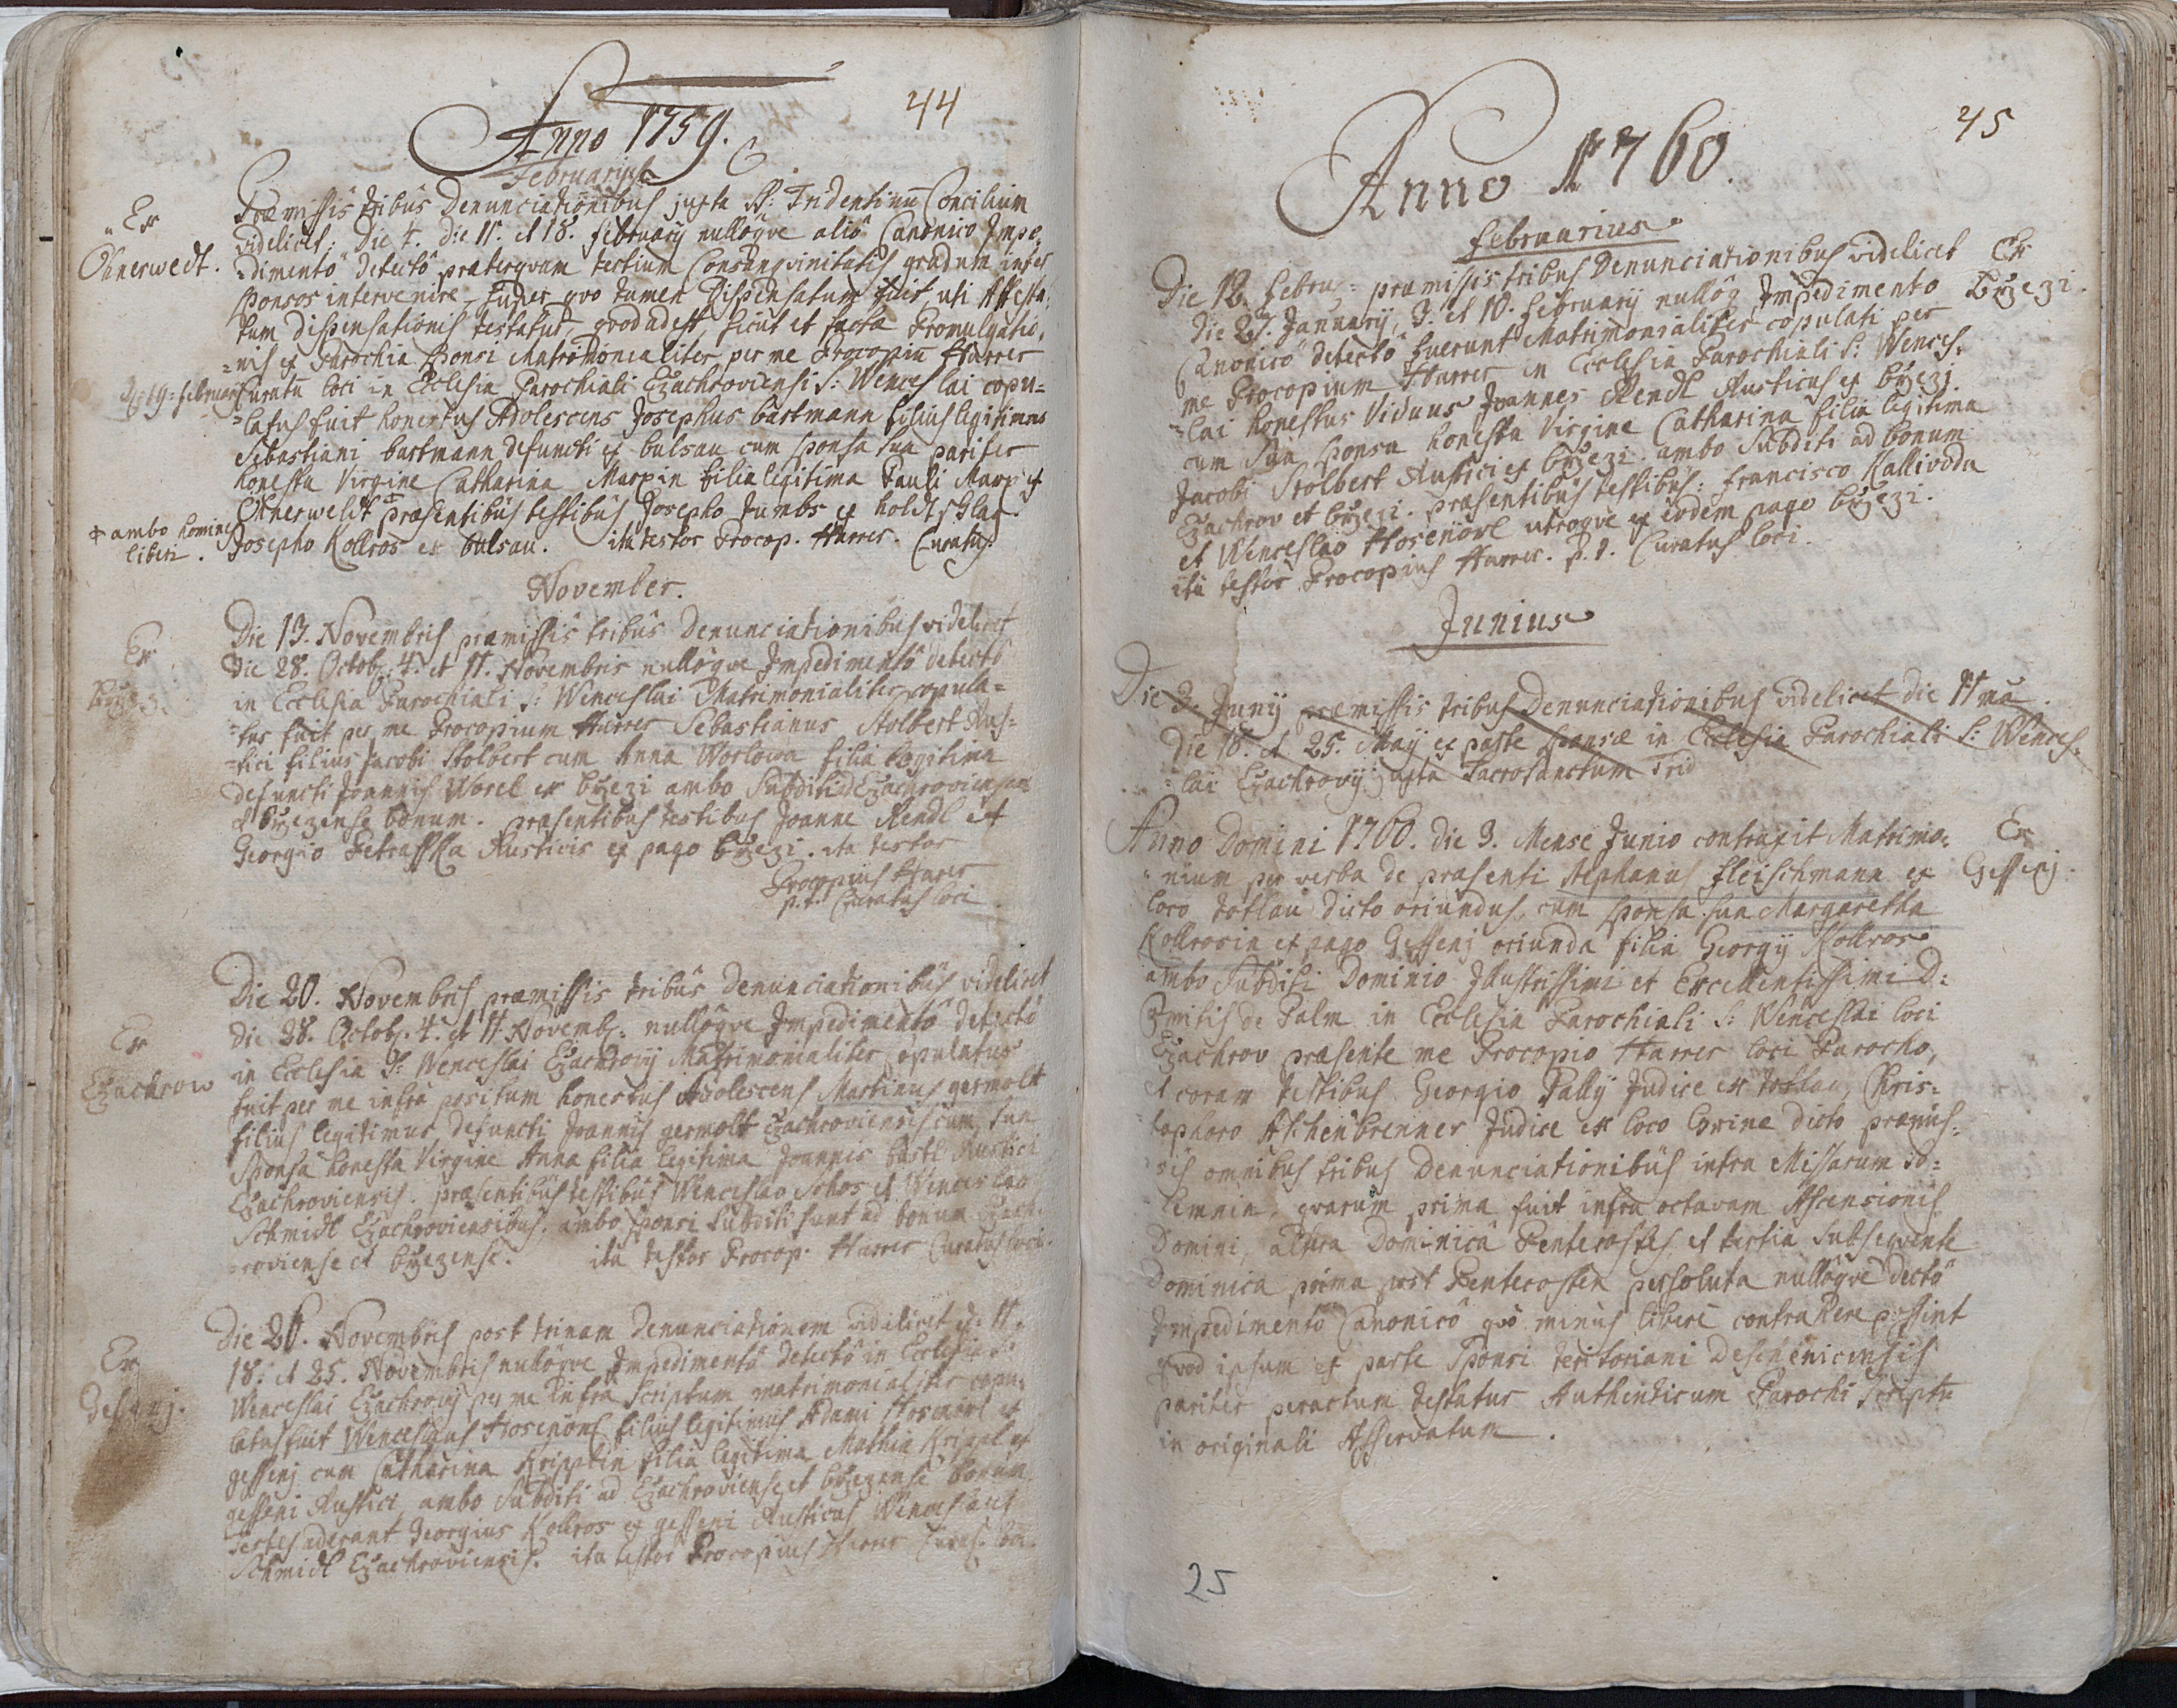 44
Anno 1759.
Februarius
Ex
Ohnerwedt.
Præmissis tribus Denunciationibus juxta SS: Tridentinum Concilium
videlicet: Die 4. die 11. et 18. february nullôqve aliô Canonico Impe-
dimentô detectô præterqvam tertium Consangvinitatis gradum inter
sponsos intervenire, super qvo tamen Dispensatum fuit, uti Attesta-
tum dispensationis testatur, qvod adest, sicut et facta Promulgatio-
nis ex Parochia sponsi Matrimonialiter per me Procopiu Harrer
19 february
Curatu loci in Ecclesia Parochiali Czachroviensi S: Wenceslai copu=
=latus fuit honestus Adolescens Josephus bartmann filius legitimus
Sebastiani bartmann defuncti ex bulsau cum sponsa sua pariter
honesta Virgine Catharina Marxin filia legitima Pauli Marx ex
Ohnerweldt præsentibus testibus Josepho Jumbs ex holdtschlag
ambo homines
liberi.
Josepho Kollros ex bulsau. ita testor Procop. Harrer. Curatus.
November.
Ex
Die 13. Novembris præmissis tribus Denunciationibus videlicet
die 28. Octob. 4. et 11. Novembris nullôqve Impedimentô detectô
in Ecclesia Parochiali S: Wenceslai Matrimonialiter copula=
=tus fuit per me Procopium Harrer Sebastianus Stolbert Rus=
=tici filius Jacobi Stolbert cum Anna Worlowa filia legitima
defuncti Joannis Worel ex bržezi ambo Subditi ad Czachroviense
et bržezense bonum. præsentibus testibus Joanne Rendl et
Georgio Petrasska Rusticis ex pago bržezi. ita testor
Procopius Harrer
p.t. Curatus loci
Ex
Czachrow
Die 20. Novembris præmissis tribus Denunciationibus videlicet
die 28. Octob. 4. et 11. Novemb: nullôqve Impedimentô detectô
in Ecclesia S: Wenceslai Czachrovij Matrimonialiter copulatus
fuit per me infra positum honestus Adolescens Martinus germolt
filius legitimus defuncti Joannis germolt Czachroviensis cum sua
Sponsa honesta Virgine Anna filia legitima Joannis bartl Rustici
Czachroviensis. præsentibus testibus Wenceslao Schos et Wenceslao
Schmidt Czachroviensibus. ambo sponsi subditi sunt ad bonum Czach-
roviense et bržezense. ita testor Procop. Harrer Curatus loci.
Ex
Die Novembris post trinam Denunciationem videlicet d. 11.
18. et 25. Novembris nullôqve Impedimentô detectô in Ecclesia S:
Wenceslai Czachrovij per me infra scriptum matrimonialiter copu-
latus fuit Wenceslaus Hosenörl filius legitimus Adami Hosenörl ex
gessenj cum Catharina Kripplin filia legitima Mathia Krippl ex
gesseni Rustici ambo Subditi ad Czachroviense et bržezense bonum
testes aderant Georgius Kollros ex gesseni Rusticus Wenceslaus
Schmidt Czachroviensis. ita testor Procopius Harrer Curat. loci.
45
Anno 1760.
februarius
Ex
Bržezi.
Die 12. Februa: præmissis tribus Denunciationibus videlicet
die 27. January, 3. et 10. february nullôq Impedimento
Canonicô detectô fuerunt Matrimonialiter copulati per
me Procopium Harrer in Ecclesia Parochiali S: Wences-
=lai honestus Viduus Joannes Rendl Rusticus ex bržezj.
cum sua sponsa honesta Virgine Catharina filia legitima
Jacobi Stolbert Rustici ex bržezi. ambo Subditi ad bonum
Czachrov et bržezi. præsentibus testibus: francisco Kallivoda
et Wenceslao Hosenörl utroqve ex eodem pago bržezi.
ita testor Procopius Harrer. p.t. Curatus loci.
Junius
Die 3. Junij præmissis tribus Denunciationibus videlicet die 11ma
die 18. et 25. Maij ex parte sponsæ in Ecclesia Parochiali S: Wences-
=lai Czachrovij juxta Sacrosanctum Trid
Ex
Gessenj.
Anno Domini 1760. die 3. Mense Junio contraxit Matrimo-
nium per verba de præsenti Stephanus fleischmann ex
loco dicto oriundus, cum sponsa sua Margaretha
Kollrosin ex pago Gessenj oriunda filia Georgij Kollros
ambo Subditi Dominio Illustrissimi et Excellentissimi D:
Comitis de Palm in Ecclesia Parochiali S: Wenceslai loci
Czachrov præsente me Procopio Harrer loci Parocho,
et coram testibus Georgio Pally Judice ex Chris-
tophoro Aschenbrenner Judice ex loco dicto præmis-
sis omnibus tribus Denunciationibus intra Missarum so-
lemnia, qvarum prima fuit infra octavam Ascensionis
Domini, altera Dominica Pentecostes et tertia subseqvente
Dominica prima post Pentecosten persoluta nullôqve dectô
Impedimentô Canonicô qvô minus liberè contrahere possint
qvod ipsum ex parte Sponsi teritoriani Deschenicensis
pariter peractum testatur Authenticum Parochi scriptu
in originali Asservatum.
25